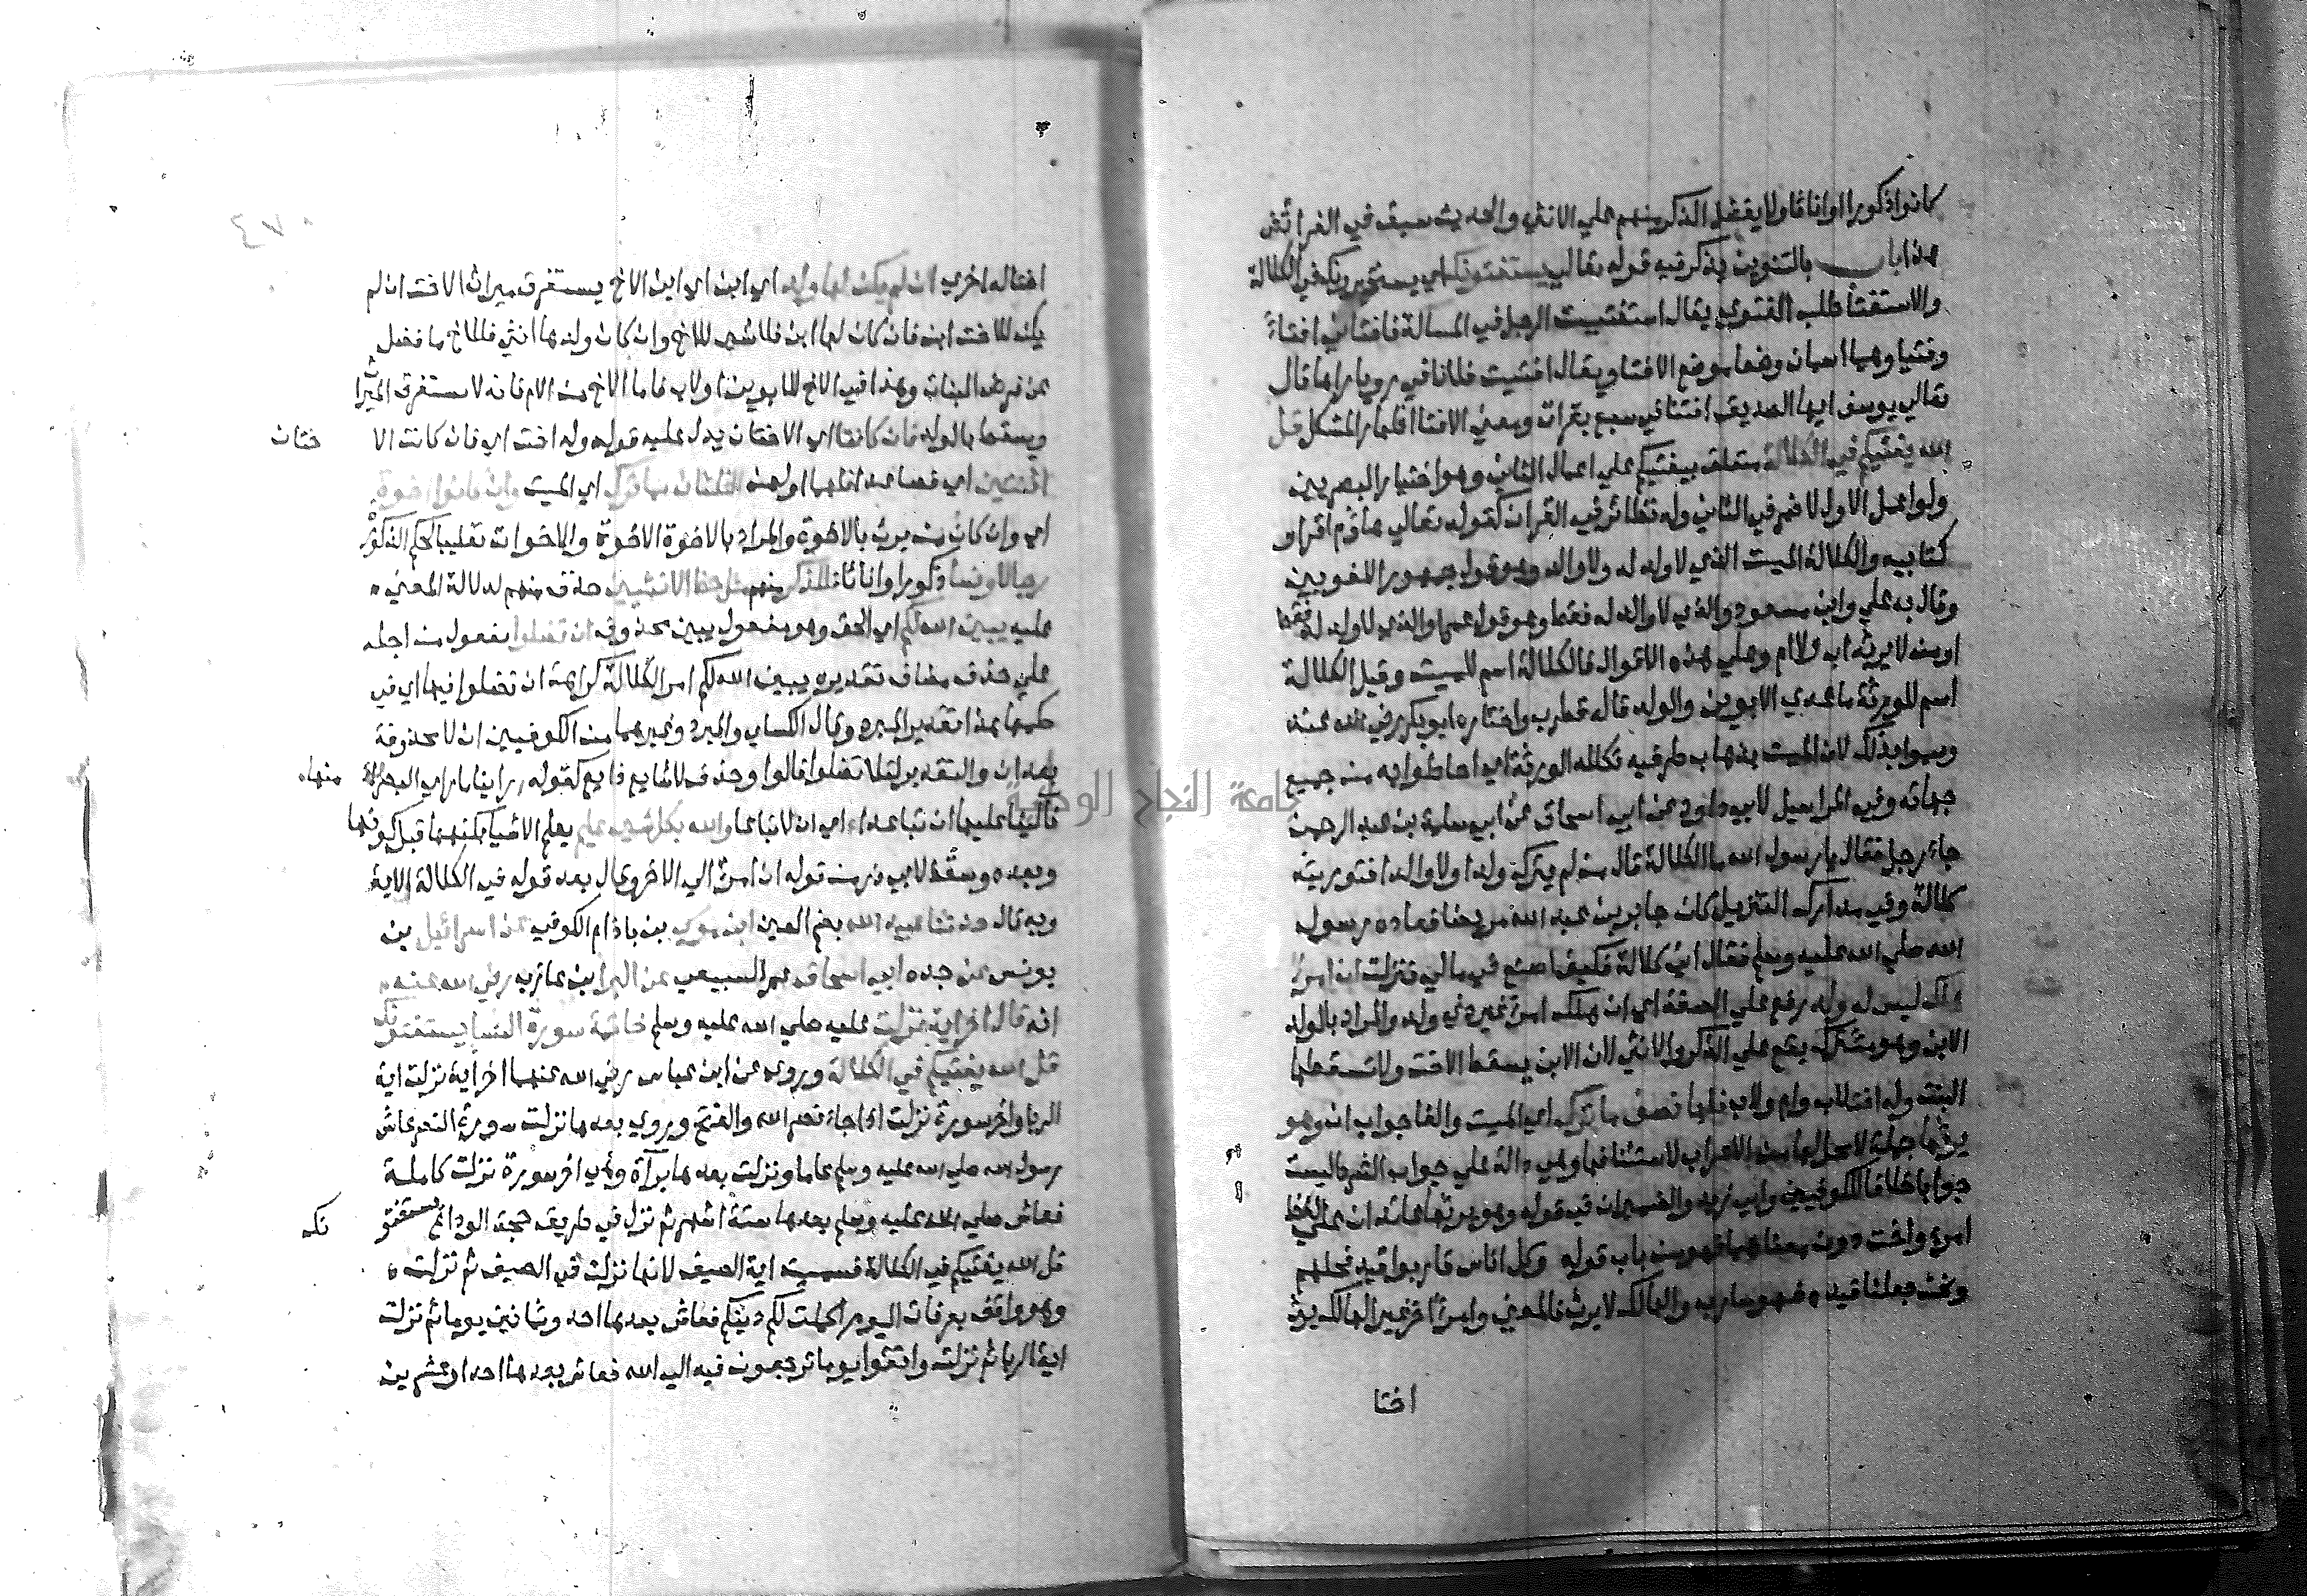 كانوا ذكورا او اناثا ولا يفضل الذكر منهم علي الانثي والحديث سبق في الفرائض
هذا باب بالتنوين يذكر فيه قوله تعالي يستفتونك اي يستخبرونك في الكلالة
والاستفتا طلب الفتوي يقال استفتيت الرجل في المسالة فافتاني افتاء
وفتيا وهما اسمان وضعا موضع الافتا ويقال افتيت فلانا في رويا راها قال
تعالي يوسف ايها الصديق افتنا في سبع بقرات ومعني الافتا اظهار المشكل قل
الله يفتيكم في الكلالة متعلق بيفتيكم علي اعمال الثاني وهو اختيار البصريين
ولو اعمل الاول لاضمر في الثاني وله نظائر في القران كقوله تعالي هاؤم اقراو
كتابيه والكلالة الميت الذي لا ولد له ولا والد وهو قول جمهور اللغويين
وقال به علي وابن مسعود والذي لا والد له فقط وهو قول عمر والذي لا ولد له فقط
او من لا يرثه اب ولا ام وعلي هذه الاقوال فالكلالة اسم للميت وقيل الكلالة
اسم للورثة ما عدي الابوين والولد قاله قطرب واختاره ابو بكر رضي الله عنه
وسموا بذلك لان الميت بذهاب طرفيه تكلله الورثة اي احاطوا به من جميع
جهاته وفي المراسيل لابي داود عن ابي اسحاق عن ابي سلمة بن عبد الرحمن
جاء رجل فقال يا رسول الله ما الكلالة قال من لم يترك ولدا ولا والدا فورثته
كلالة وفي مدارك التنزيل كان جابر بن عبد الله مريضا فعاده رسول
الله صلي الله عليه وسلم فقال اني كلالة فكيف اصنع في مالي فنزلت ان امرؤ
هلك ليس له ولد رفع علي الصفة اي ان هلك امرؤ غير ذي ولد والمراد بالولد
الابن وهو مشترك يقع علي الذكر والانثي لان الابن يسقط الاخت ولا تسقطها
البنت وله اخت لاب وام ولاب فلها نصف ما ترك اي الميت والفا جواب ان وهو
يرثها جملة لا محل لها من الاعراب لاستئنافها وهي دالة علي جواب الشرط وليست
جوابا خلافا للكوفيين وابي زيد والضميران في قوله وهو يرثها عائدان علي لفظ
امرئ واخت دون معناهما فهو من باب قوله وكل اناس قاربوا قيد فحلهم
ونحن خلعنا قيده فهو سارب والهالك لا يرث فالمعني وامرؤ اخر غير الهالك يرث
اختا
اختا له اخري ان لم يكن لها ولد اي ابن اي ابن الاخ يستغرق ميراث الاخت ان لم
يكن للاخت ابن فان كان لها ابن فلا شي للاخ وان كان ولدها انثي فللاخ ما فضل
عن فرض البنات وهذا في الاخ للابوين او لاب فاما الاخ من الام فانه لا يستغرق الميراث
ويسقط بالولد فان كانتا اي الاختان يدل عليه قوله وله اخت اي فان كانت الا ختان
اثنتين اي فصاعدا فلهما او لهن الثلثان مما ترك اي الميت وان كانوا اخوة
اي وان كان من يرث بالاخوة والمراد بالاخوة الاخوة والاخوات تغليبا لحكم الذكورة
رجالا ونسا ذكورا واناثا فللذكر منهم مثل حظ الانثيين حذف منهم لدلالة المعني
عليه يبين الله لكم اي الحق وهو مفعول يبين محذوف ان تضلوا مفعول من اجله
علي حذف مضاف تقديره يبين الله لكم امر الكلالة كراهة ان تضلوا فيها اي في
حكمها هذا تقدير المبرد وقال الكساي والمبرد وغيرهما من الكوفيين ان لا محذوفة
بعد ان والتقدير لئلا تضلوا قالوا وحذف لا شايع ذايع كقوله راينا ما راي البصراء منها
فالينا عليها ان تباعا اي ان لا تباعا والله بكل شي عليم يعلم الاشيا بكنهها قبل كونها
وبعده وسقط لابي ذر من قوله ان امرؤ الي الاخر وقال بعد قوله في الكلالة الاية
وبه قال حدثنا عبيد الله بضم العين ابن موسي بن باذام الكوفي عن اسرائيل بن
يونس عن جده ابي اسحاق عمر السبيعي عن البرا بن عازب رضي الله عنه
انه قال اخر اية نزلت عليه صلي الله عليه وسلم خاتمة سورة النسا يستفتونك
قل الله يفتيكم في الكلالة وروي عن ابن عباس رضي الله عنهما اخر اية نزلت اية
الربا واخر سورة نزلت اذا جاء نصر الله والفتح وروي بعد ما نزلت سورة النصر عاش
رسول الله صلي الله عليه وسلم عاما ونزلت بعدها براة وهي اخر سورة نزلت كاملة
فعاش صلي الله عليه وسلم بعدها ستة اشهر ثم نزل في طريق حجة الوداع يستفتو نك
قل الله يفتيكم في الكلالة فسميت اية الصيف لانها نزلت في الصيف ثم نزلت
وهو واقف بعرفات اليوم اكملت لكم دينكم فعاش بعدها احد وثمانين يوما ثم نزلت
اية الربا ثم نزلت واتقوا يوما ترجعون فيه الي الله فعاش بعدها احدا وعشرين
جامعة النجاح الوطنية